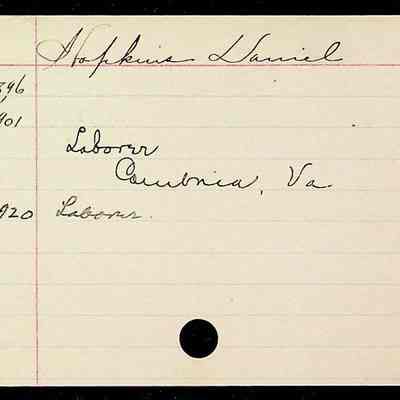 Hopkins Daniel
896
901
Laborer
Cambria, Va.
920 Laborer.